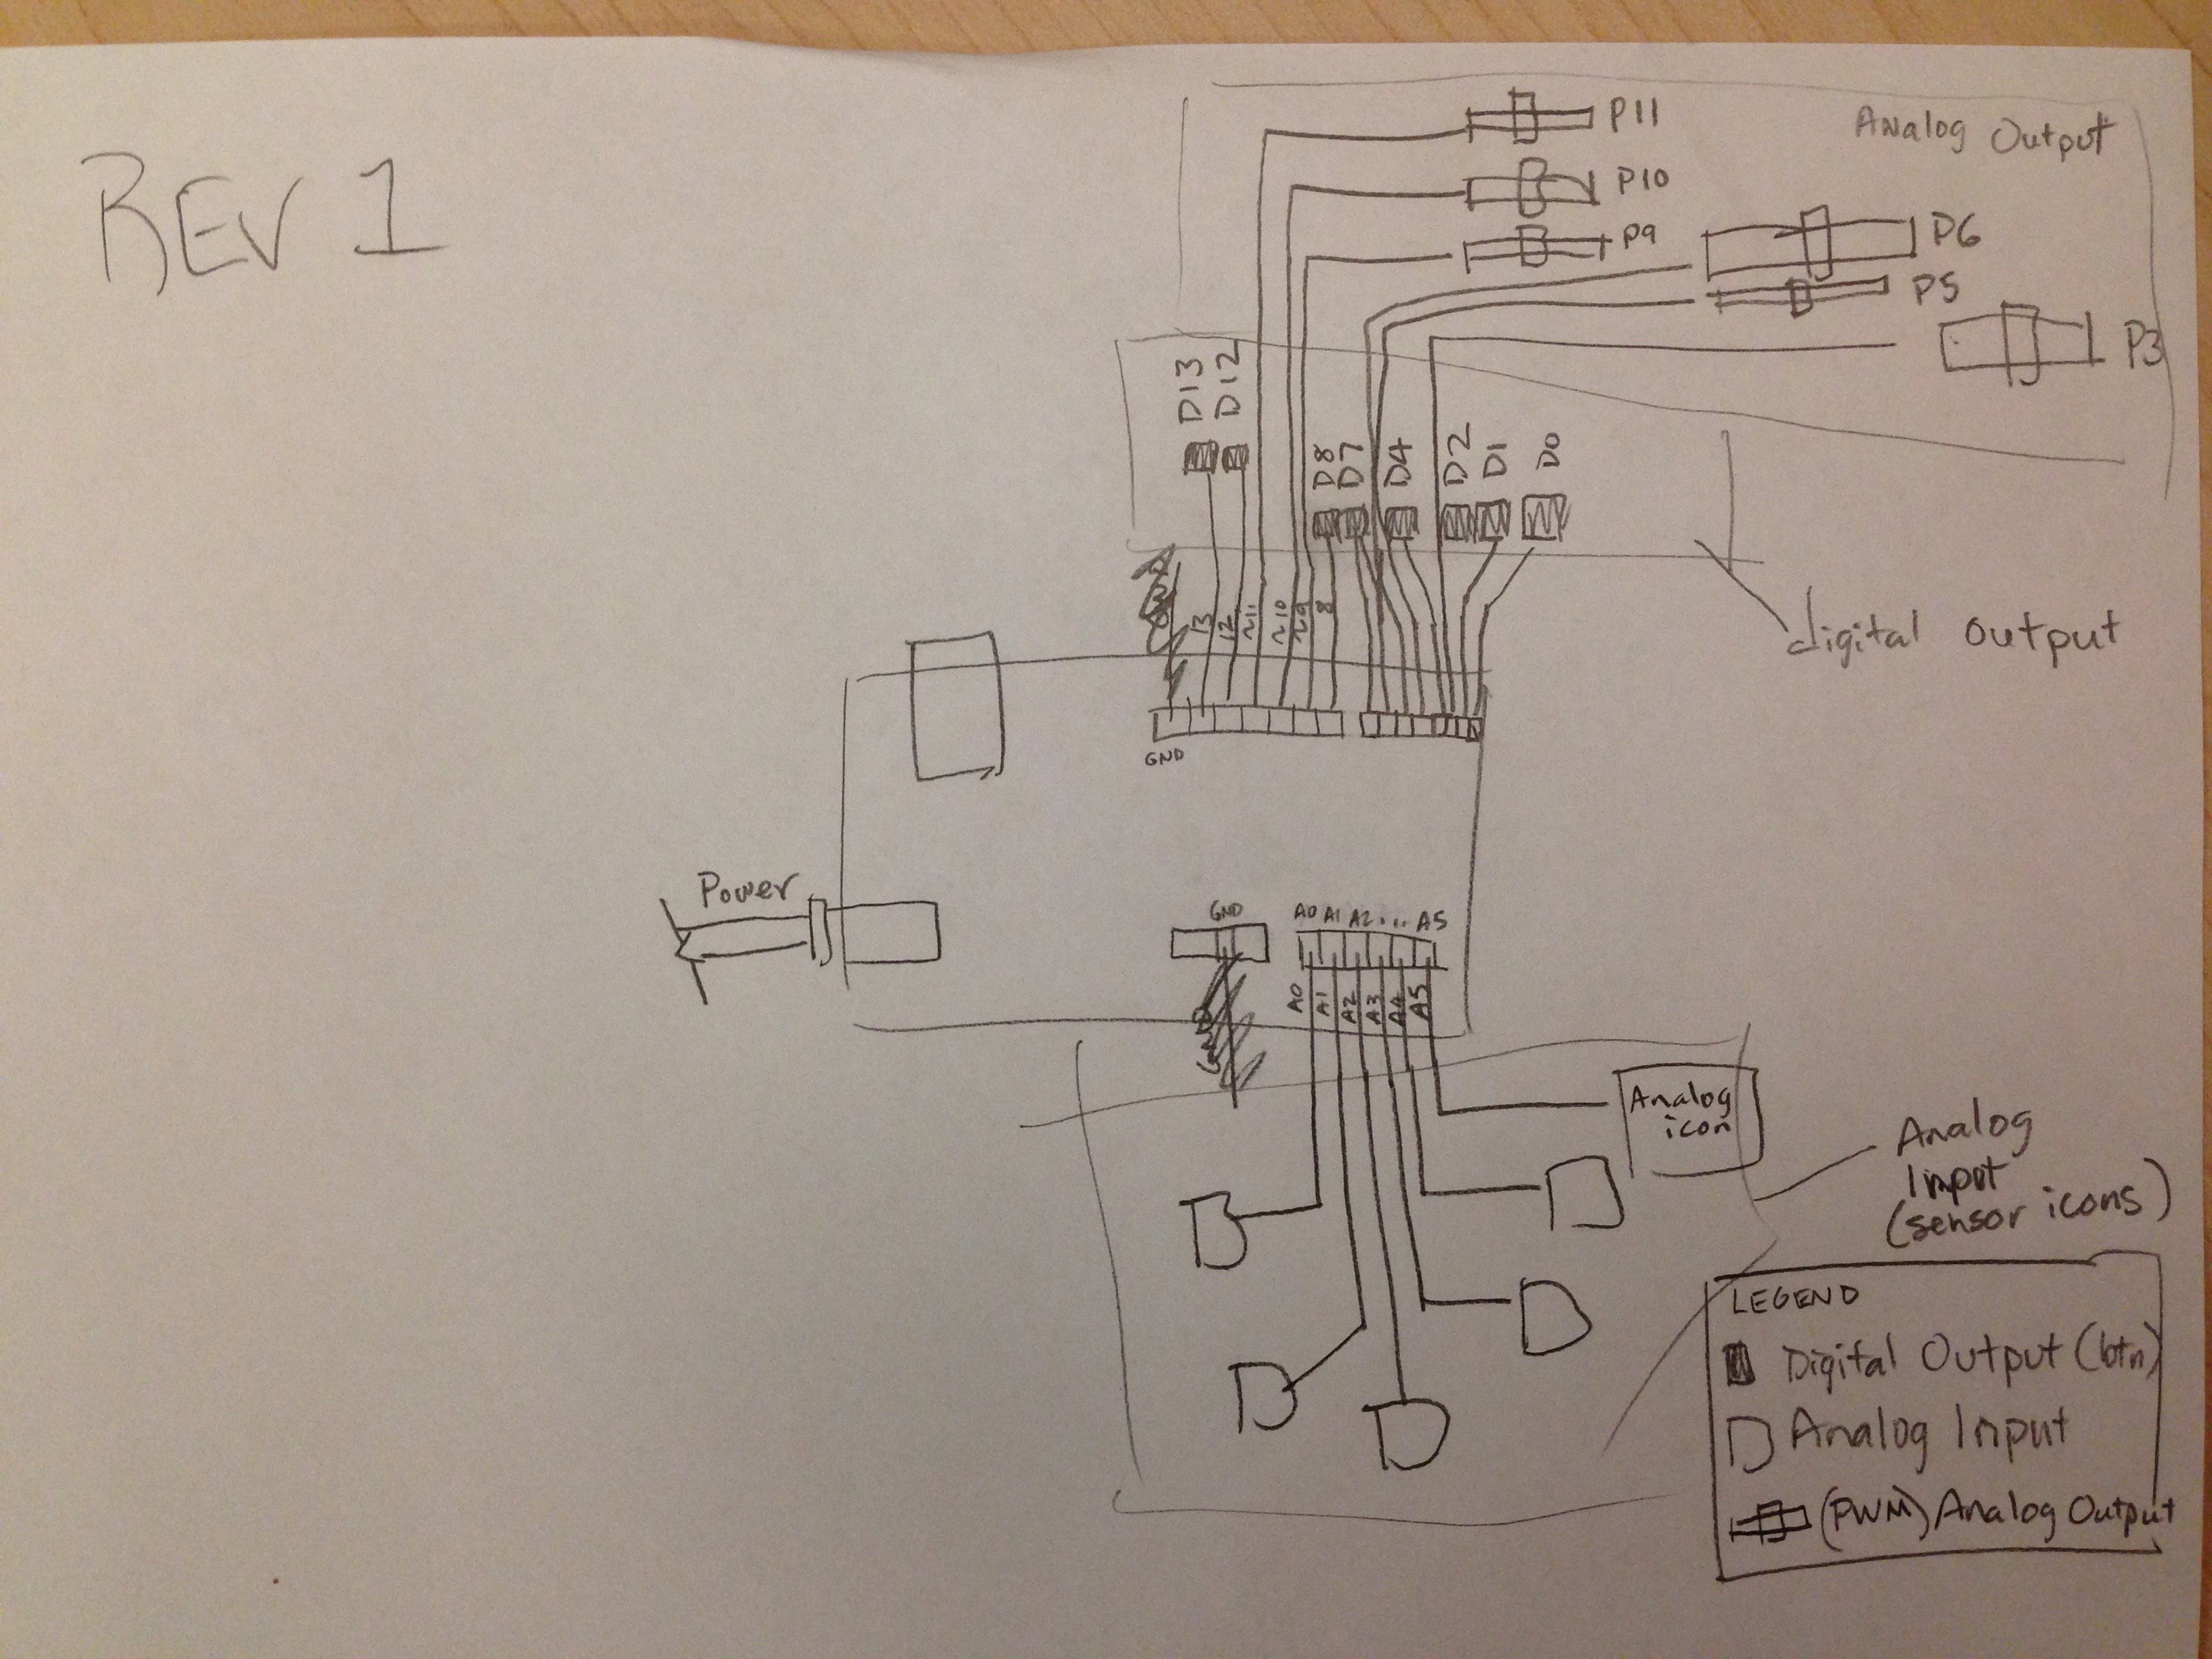 REV 1
Analog Output
P11
P10
P9
P6
P5
P3
D13
D12
D8
D7
D4
D2
D1
D0
digital output
13
12
~11
~10
~9
8
GND
Power
GND
A0 A1 A2 ... A5
A0
A1
A2
A3
A4
A5
GND
Analog
icon
Analog
Input
(sensor icons)
LEGEND
Digital Output (btn)
Analog Input
(PWM) Analog Output